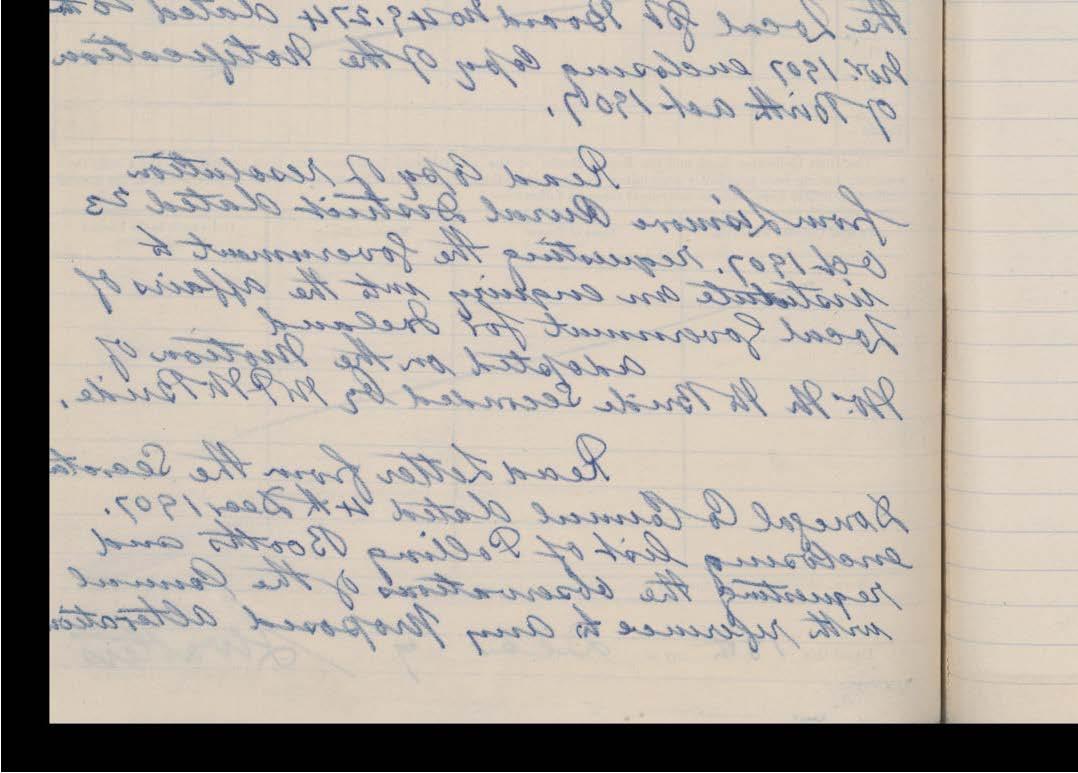 the Local Gt Board No 49.274 dated 20th
Nov. 1907 enclosing Copy of the Notification
of Birth act 1907.
Read Copy of resolution
from Lismore Rural District dated 23
Oct 1907. requesting the Government to
institute an enquiry into the affairs of
Local Government for Ireland
adopted on the Motion of
Mr. McBride Seconded by
Read Letter from the
Donegal Co Council dated 4th Dec, 1907.
enclosing list of Polling Booths and
requesting the observations of the Council
with reference to any proposed alteration